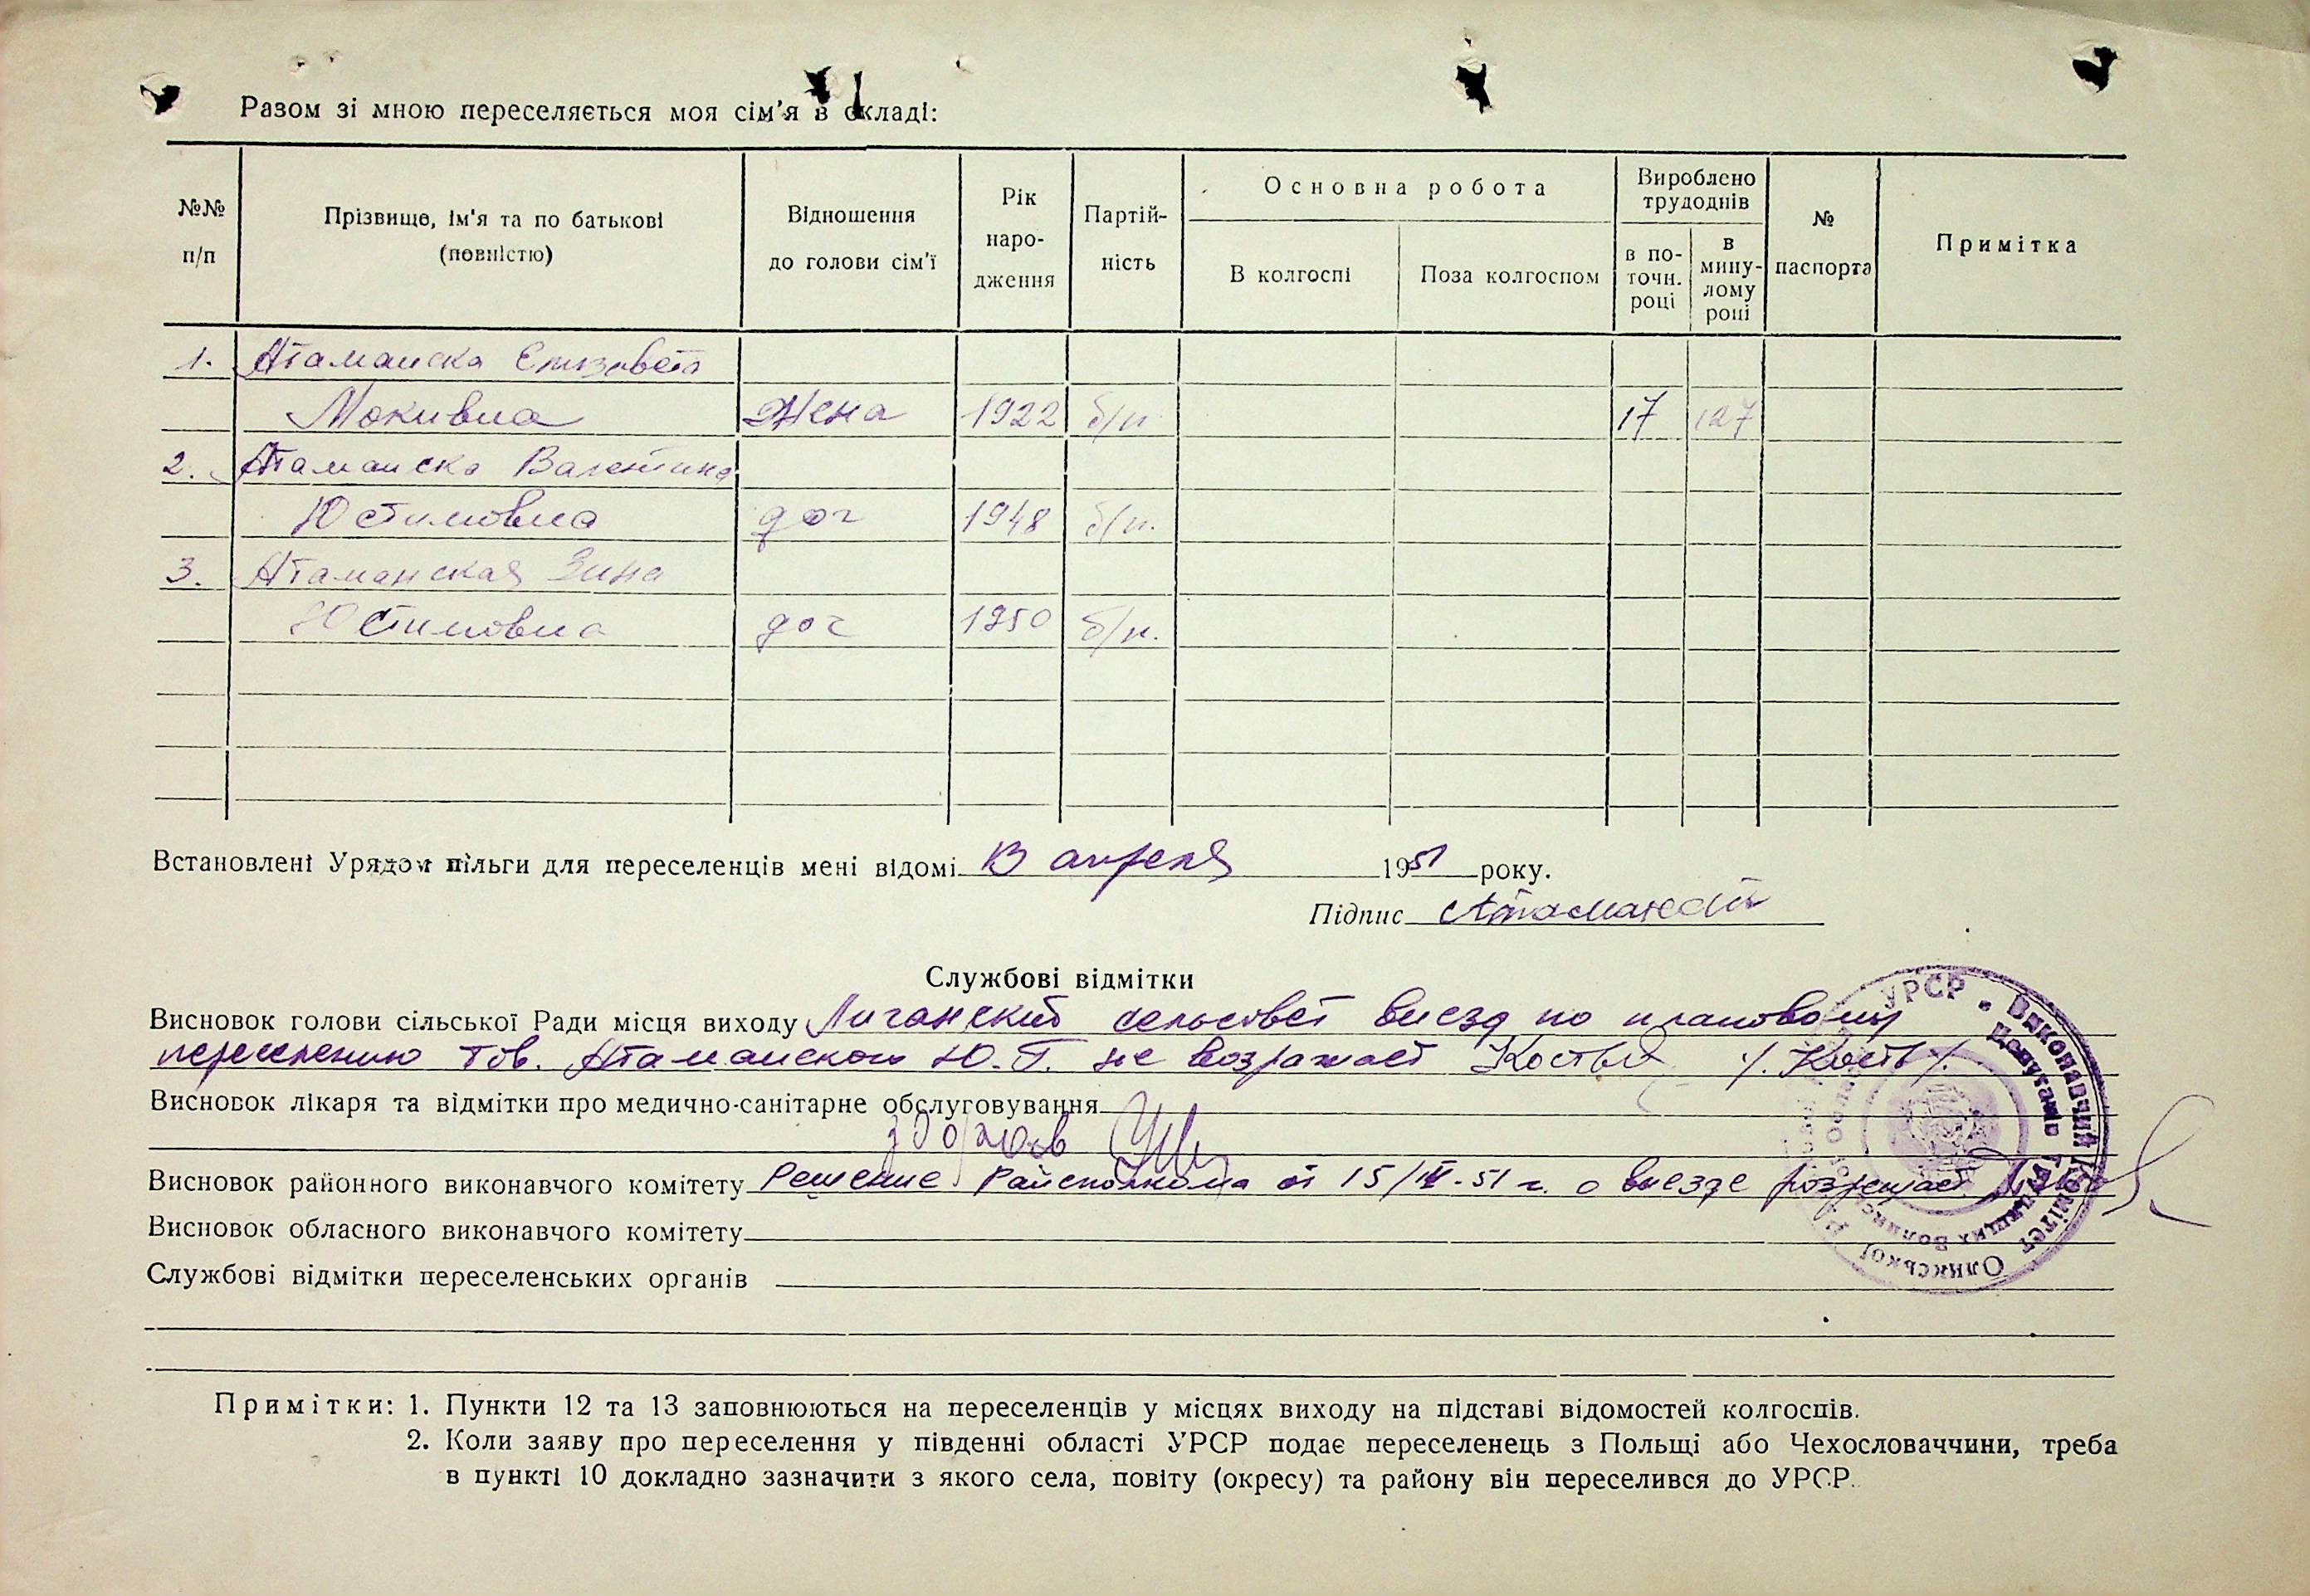 Разом зі мною переселяється моя сім'я в складі:
№№ п/п
Прізвище, ім'я та по батькові (повністю)
Відношення до голови сім'ї
Рік народження
Партійність
Основна робота
В колгоспі
Поза колгоспом
Вироблено трудоднів
в поточн. році
в минулому році
№ паспорта
Примітка
1. Атаманска Елизавета
Мокивна Жена 1922 б/п 17 127
2. Атаманска Валентина
Юстимовна доч 1948 б/п.
3. Атаманская Зина
Юстимовна доч 1950 б/п.
Встановлені Урядом пільги для переселенців мені відомі 13 апреля 1951 року.
Підпис
Службові відмітки
Висновок голови сільської Ради місця виходу сельсовет виезд по плановому
переселению тов. Атаманского Ю. Г. не возражает
Висновок лікаря та відмітки про медично-санітарне обслуговування
Висновок районного виконавчого комітету Решение Райсполкома от 15/IV-51 г. о виезде розрешает
Висновок обласного виконавчого комітету
Службові відмітки переселенських органів
УРСР • Виконавчий Комітет Олицької
Депутатів Трудящих Волинської
Примітки: 1. Пункти 12 та 13 заповнюються на переселенців у місцях виходу на підставі відомостей колгоспів.
2. Коли заяву про переселення у південні області УРСР подає переселенець з Польщі або Чехословаччини, треба
в пункті 10 докладно зазначити з якого села, повіту (округу) та району він переселився до УРСР.